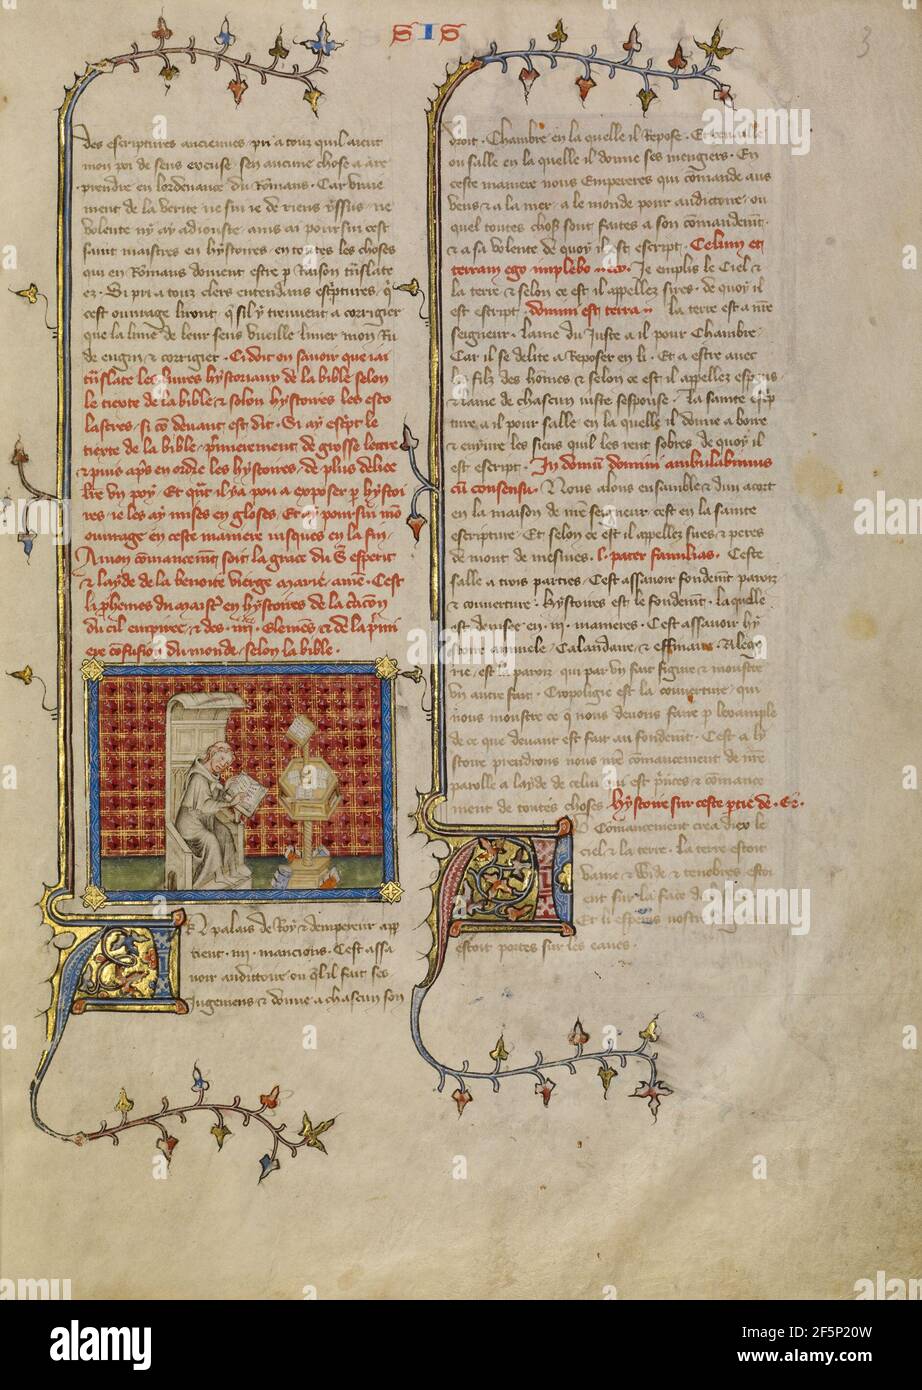 S I S
3
des escriptures anciennes pri a touz quil aient
mon poi de sens excuse sen aucune chose a a re
prendre en lordenance du Romans . Car
ment de la verite ne sui ie de riens yssus ne
volente ny ay adiouste ains ai poursiu cest
saint maistres en hystoires en toutes les choses
qui en Romans doivent estre p Raison tnslate
ez . Si pri a touz clers entendans esptures q
cest ouurage liront q sil y treuuent a corrigier
que la lime de leur sens vueille limer mon Ru
de engin & corrigier . Ci doit on sauoir que iai
tnslate les liures hystoriaux de la bible selon
le texte de la bible & selon hystoires les esco
lastres si co deuant est dit . Si ay espt le
tiexte de la bible pmierement de grosse lettre
& puis aps en ordre les hystoires de plus deliee
lre vn poy . Et qnt il ya pou a exposer p hystoi
res ie les ay mises en gloses Et ay poursiui mo
ouurage en ceste maniere iusques en la fin .
A mon comancemt soit la grace du S esperit
& layde de la benoite vierge marie amen . Cest
li phemes du maistre en hystoires de la
du ciel empiree & des iiij Elemes & de la pmi
ere confusion du monde selon la bible .
En palais de Roy & dempereur app
tient iiij mancions . Cest assa
uoir auditoire ou ql il fait ses
Jugemens & donne a chascun son
droit . Chambre en la quelle il Repose . Et
ou salle en la quelle il donne ses mengiers . En
ceste maniere nous Empereres qui comande aus
vens & a la mer a le monde pour auditoire ou
quel toutes choses sont faites a son comandemt
& a sa volente de quoy il est escript . Celum et
terram ego implebo Je emplis le Ciel &
la terre & selon ce est il appellez sires . de quoy il
est escript . domini est terra La terre est a nre
seigneur . Lame du Juste a il pour Chambre .
Car il se delite a Reposer en li . Et a estre auec
les filz des homes & selon ce est il appellez espous
& lame de chascun iuste sespouse . La sainte escp
ture a il pour salle en la quelle il donne a boire
& enyure les siens quil les rent sobres de quoy il
est escript . In domu domini ambulabimus
cu consensu . Nous alons ensamble & dun acort
en la maison de nre seigneur cest en la sainte
escripture . Et selon ce est il appellez sires & peres
de mesnies . i. pater familias . Ceste
salle a trois parties . Cest assauoir fondemt paroiz
& couuerture . Hystoires est le fondemt . la quelle
est deuisee en iij manieres . Cest assauoir hy
stoire annuele Calandaire & effimaire . Allego
rie est la paroiz qui par vn fait figure & monstre
vn autre fait . Tropoligie est la couuerture qui
nous monstre ce q nous deuons faire p lexample
de ce que deuant est fait au fondemt . Cest a hy
stoire prendrons nous nre comancement de nre
parolle a layde de celui qui est pnces & comance
ment de toutes choses . Hystoire sur ceste ptie de
Comancement crea diex le
ciel & la terre . La terre estoit
vaine & Vide & tenebres estoi
ent sur la face de
Et li esperis nostre
estoit portes sur les eaues .
alamy
Image ID: 2F5P20W
www.alamy.com